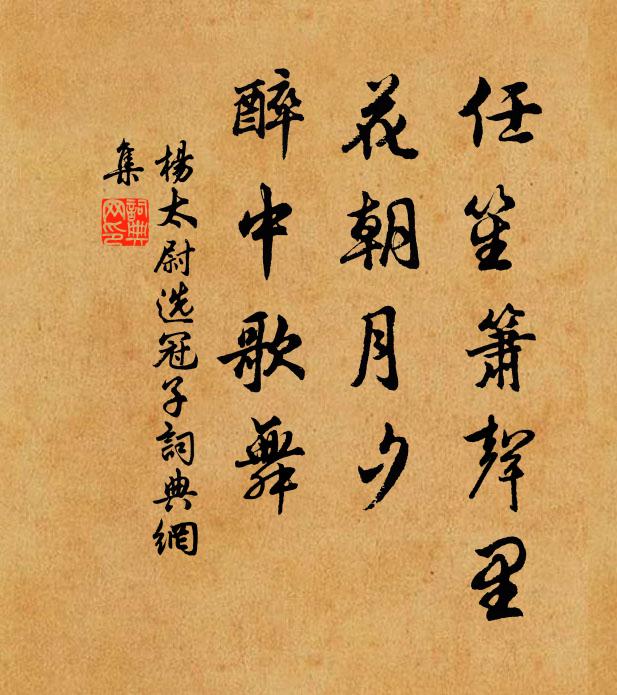 任笙簫聲里
花朝月夕
醉中歌舞
楊太尉選冠子詞典網
集
詞典
网印